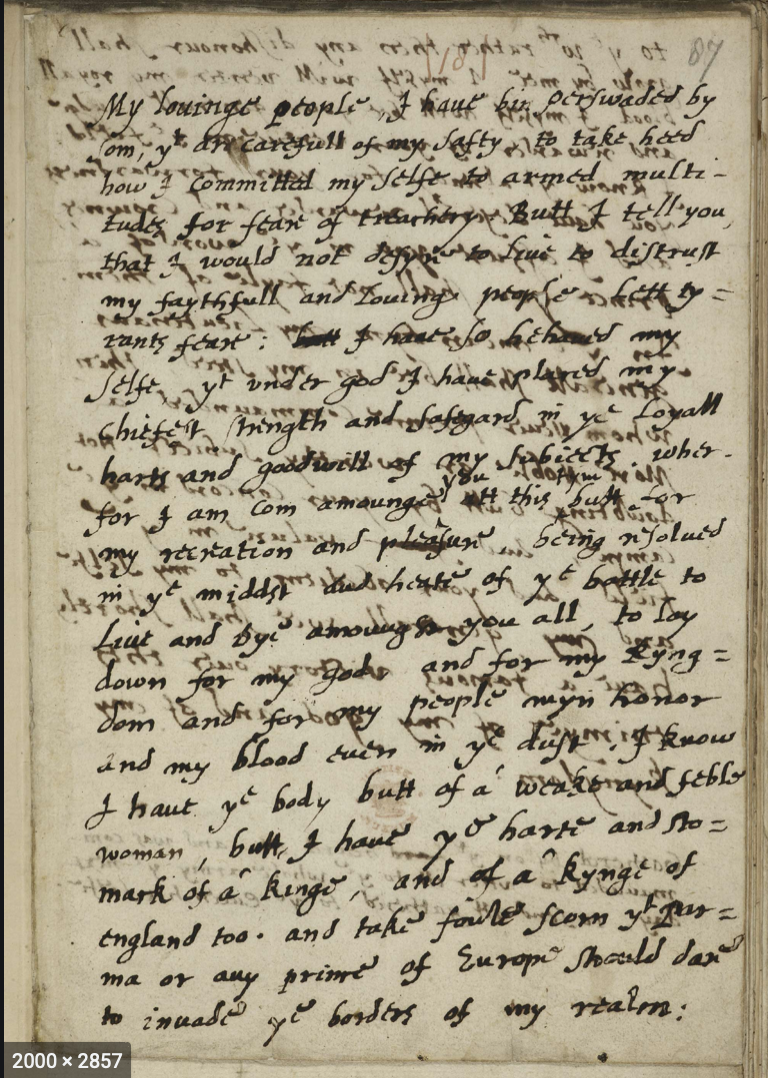 87
My louinge people, I haue bin perswaded by
som, yt are carefull of my safty, to take heed
how I committed my selfe to armed multi-
tudes for fear of treachery. Butt I tell you,
that I would not desyre to liue to distrust
my faythfull and louinge people. lett ty=
rants feare: butt I haue so behaued my
selfe, yt vnder god I haue placed my
chiefest strength and safegard in ye Loyall
harts and goodwill of my subiects. wher-
for I am com amounge you att this butt for
my recreation and pleasure being resolued
in ye middst and heate of ye battle to
Liue and Dye amoungst you all, to lay
down for my god, and for my Kyng=
dom and for my people myn honor
and my blood euen in ye dust. I know
I haue ye body butt of a weake and feble
woman, butt I haue ye harte and sto=
mack of a kinge, and of a kynge of
england too. and take foule scorn yt Par=
ma or any prince of Europe should dare
to inuade ye borders of my realm:
2000 × 2857